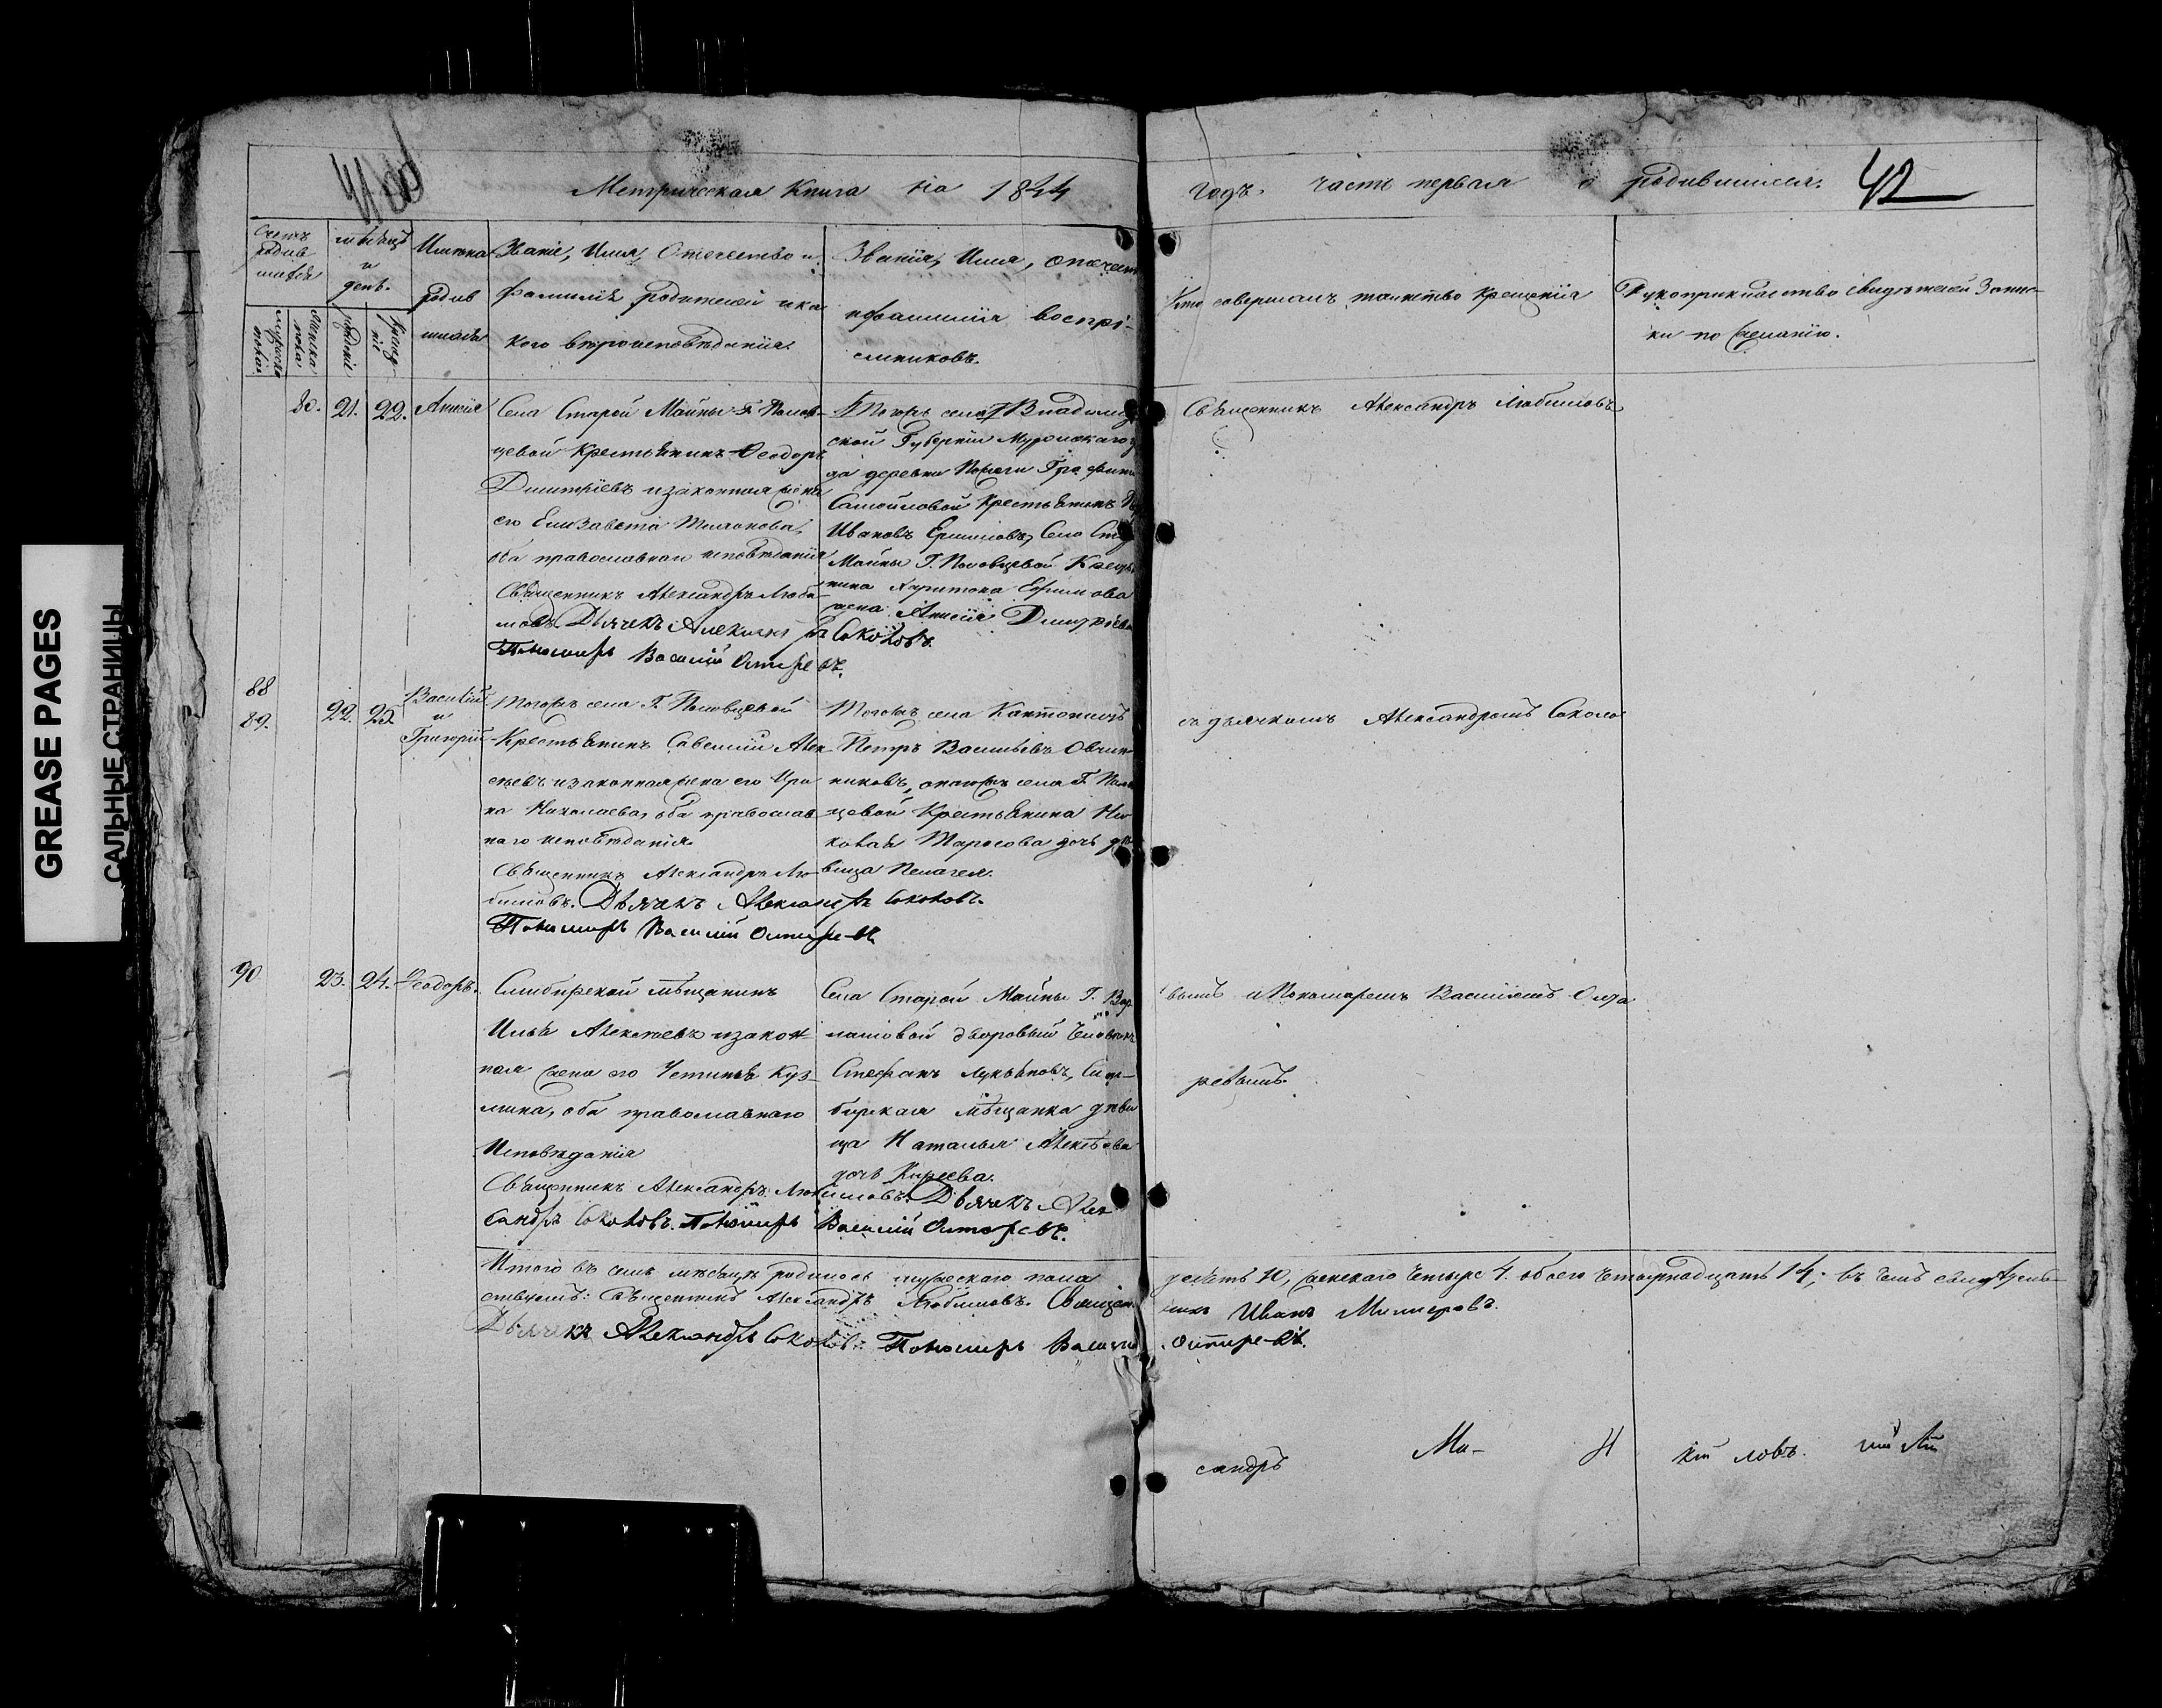 GREASE PAGES
САЛЬНЫЕ СТРАНИЦЫ
Метрическая Книга на 1844
годъ. часть первая о родившихся. 42
Счетъ родив шихся
мѣсяцъ и день.
Имена родив шихся
Званіе, Имя, Отечество и
фамилія родителей и ка
кого вѣроисповѣданія.
Званія, Имя, отечест
и фамилія воспрі-
емниковъ.
Кто совершалъ таинство крещенія
Рукоприкладство свидѣтелей запис-
ки по желанію.
80. 21. 22. Анисія
Села Старой Майны Г. Полов-
цевой Крестьянинъ Ѳеодоръ
Димитріевъ и законная жена
его Елизавета
оба православнаго исповѣданія
Священникъ Александръ Люби-
мовъ. Дьячекъ Александръ Соколовъ.
Пономарь Василій
Тогожъ села Владимір
ской Губерніи Муромскаго
да деревни Графини
Самойловой Крестьянинъ
Ивановъ Ермиловъ, Села Ста
Майны Г. Половцевой Крестья
нина Харитона Ефимова
жена Анисія Димитріева
Священникъ Александръ Любимовъ
88
89. 22. 23. Василій и Григорій
Тогожъ села Г. Половцевой
Крестьянинъ Савелій Алек
сѣевъ и законная жена его Ири
на Николаева, оба православ
наго исповѣданія.
Священникъ Александръ Лю
бимовъ. Дьячекъ Александръ Соколовъ.
Пономарь Василій
Тогожъ села Кантонистъ
Петръ Васильевъ Овчин
никовъ, и тогожъ села Г. Полов
цевой Крестьянина Ни
колая Тарасова дочь дѣ
вица Пелагея.
съ дьячкомъ Александромъ Соколо
90 23. 24. Ѳеодоръ.
Симбирской мѣщанинъ
Илья Алексѣевъ и закон
ная жена его Устинья Куз
мина, оба православнаго
Исповѣданія
Священникъ Александръ Любимовъ. Дьячекъ Алек
сандръ Соколовъ. Пономарь Василій
Села Старой Майны Г.
дворовый человѣкъ
Стефанъ Лукьяновъ, Сим-
бирская мѣщанка дѣви
ца Наталья Алексѣева
дочь Киреева.
вымъ и Пономаремъ Василіемъ
ревымъ.
Итого въ семъ мѣсяцѣ родилось мужескаго пола десять 10, женскаго четыре 4. обоего четырнадцать 14; въ чемъ свидѣтель
ствуемъ: Священникъ Александръ Любимовъ. Священникъ Иванъ
Дьячекъ Александръ Соколовъ. Пономарь Василій
сандръ Ми- Н кій ловъ.